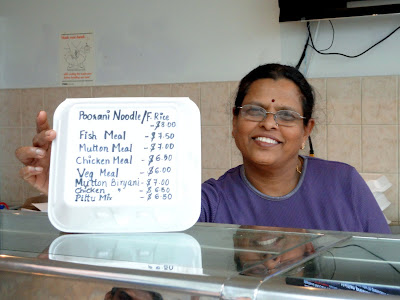 Poorani Noodle/F. Rice
- $8.00
Fish Meal - $7.50
Mutton Meal - $7.00
Chicken Meal - $6.50
Veg Meal - $6.00
Mutton Biryani - $7.00
Chicken " - $6.50
Pittu Mix - $6.50